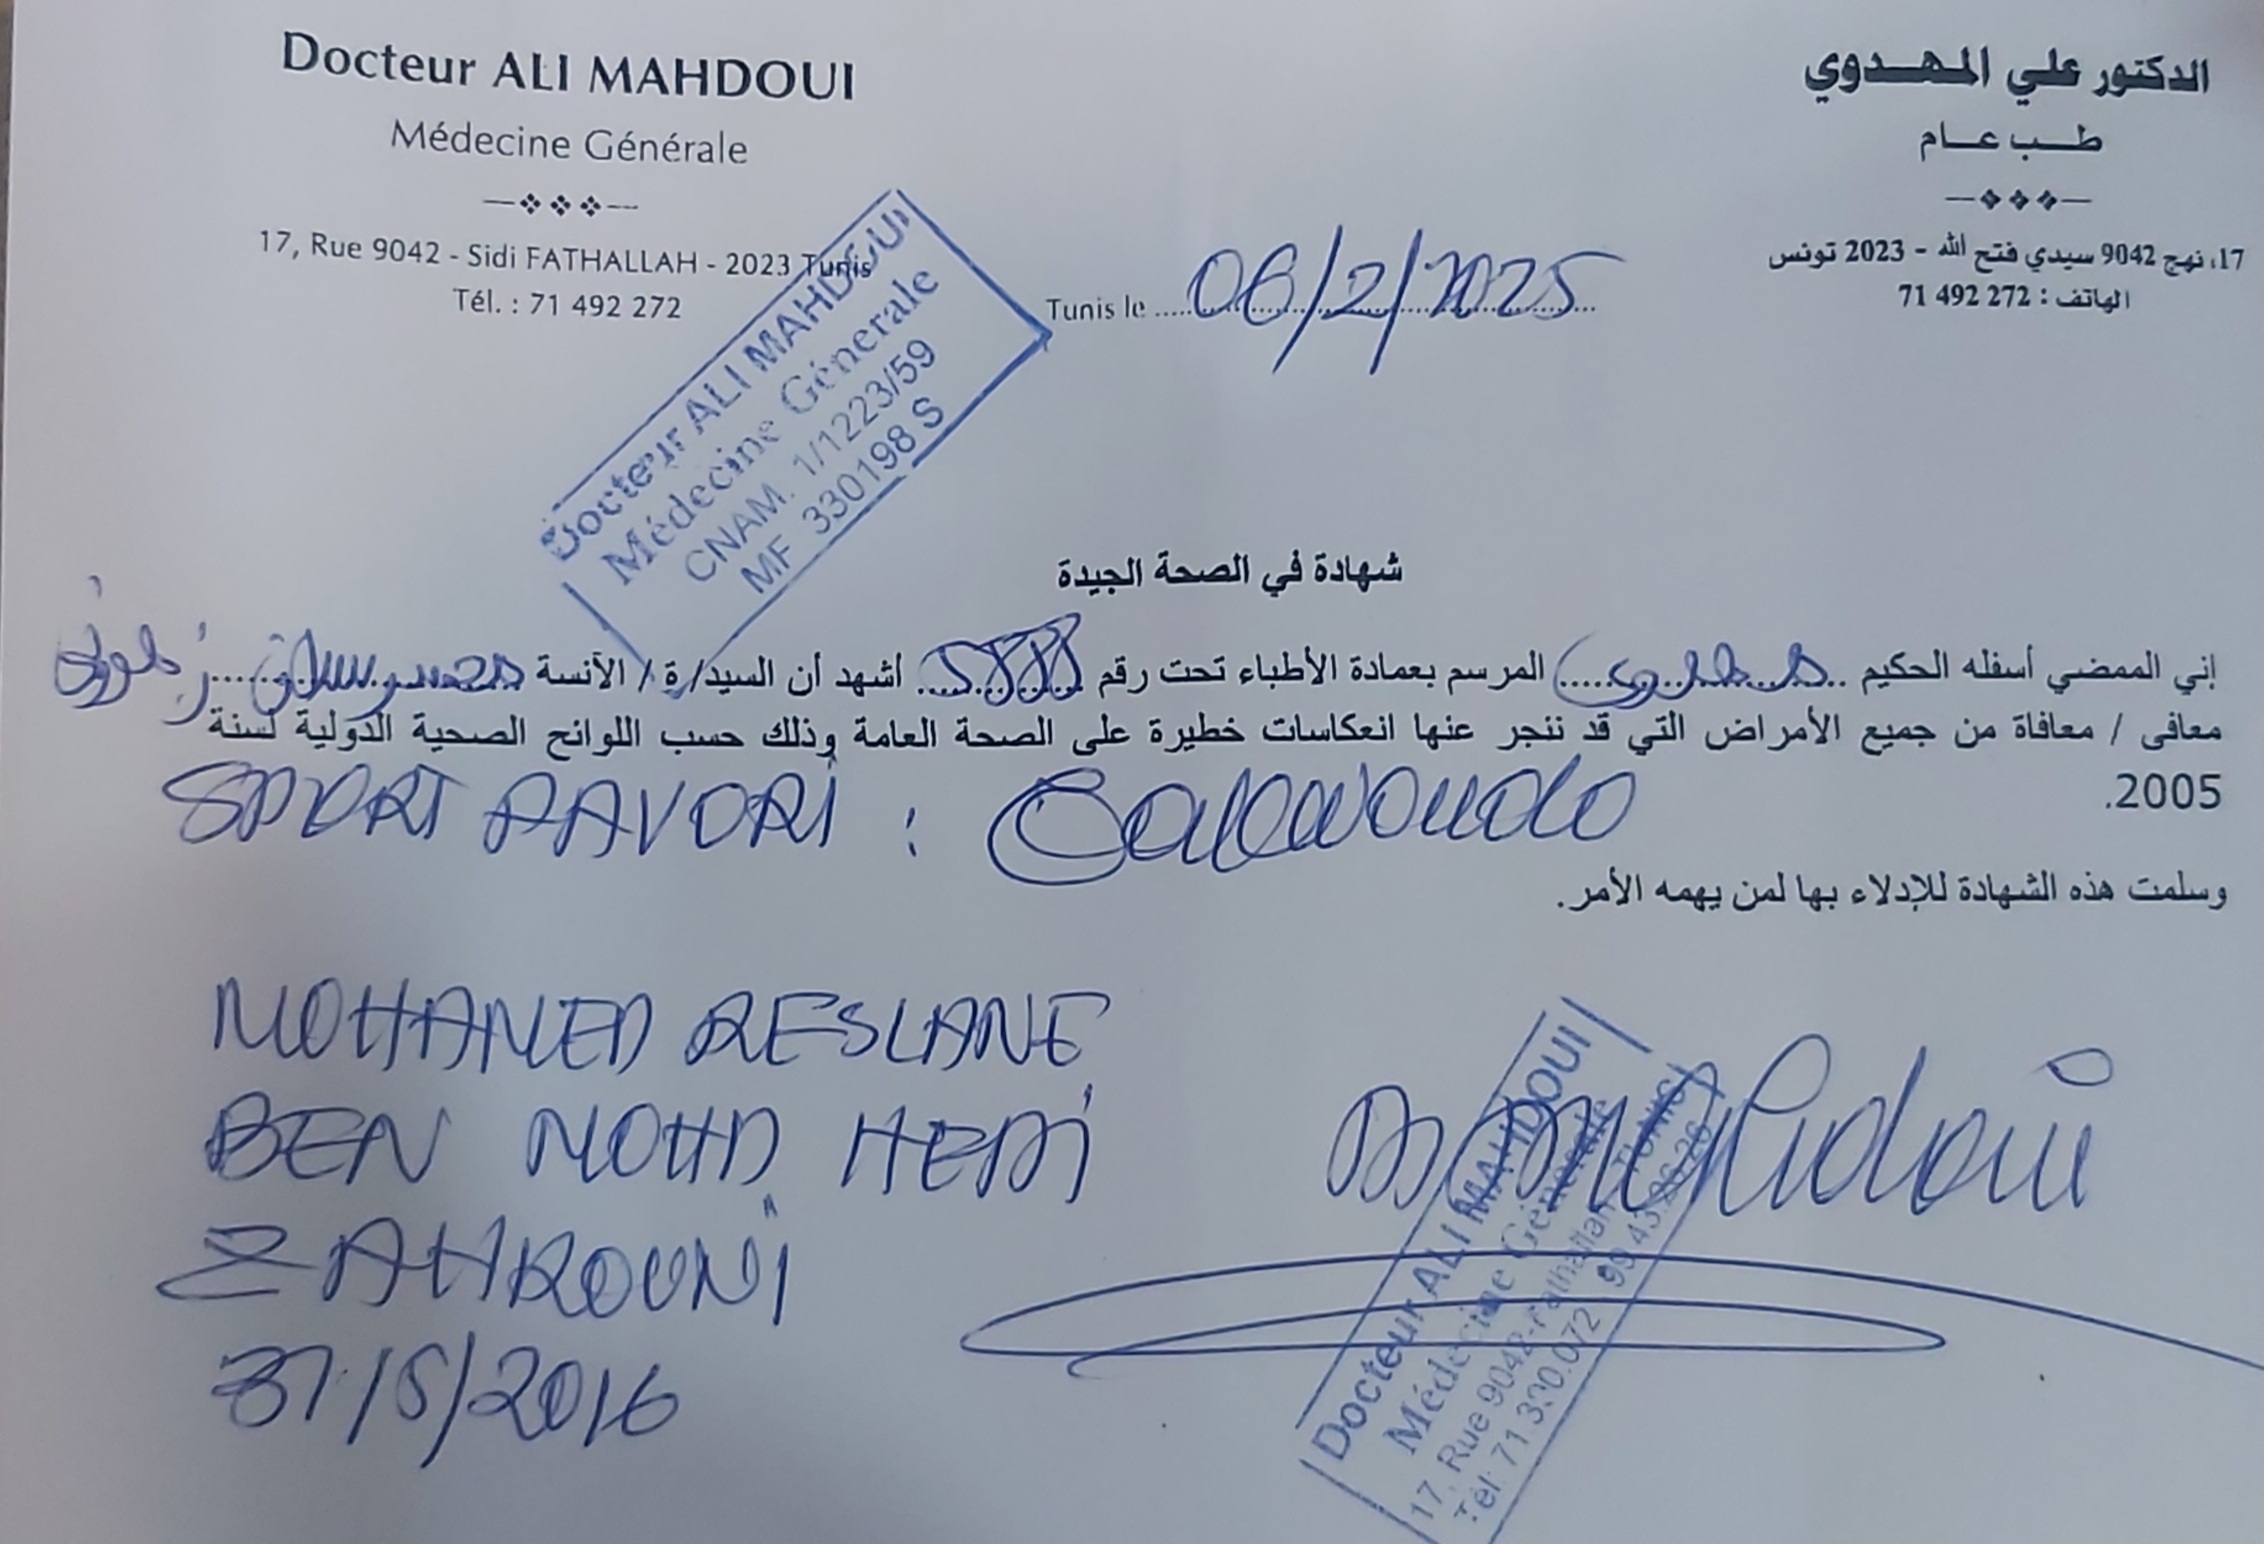 Docteur ALI MAHDOUI
Médecine Générale
17, Rue 9042 - Sidi FATHALLAH - 2023 Tunis
Tél. : 71 492 272
الدكتور علي المهدوي
طب عام
17، نهج 9042 سيدي فتح الله - 2023 تونس
الهاتف : 71 492 272
Tunis le 06/2/2025
Docteur ALI MAHDOUI
Médecine Génerale
CNAM. 1/1223/59
MF 330198 S
شهادة في الصحة الجيدة
إني الممضي أسفله الحكيم المرسم بعمادة الأطباء تحت رقم أشهد أن السيد/ة / الآنسة
معافى / معافاة من جميع الأمراض التي قد ننجر عنها انعكاسات خطيرة على الصحة العامة وذلك حسب اللوائح الصحية الدولية لسنة
2005.
SPORT :
وسلمت هذه الشهادة للإدلاء بها لمن يهمه الأمر.
MOHAMED RESLANE
BEN MOHD HEDI
ZAHROUNI
31/5/2016
Docteur ALI MAHDOUI
Médecine Génerale
17, Rue 9042-Fathallah Tunis
Tél: 71 330.072